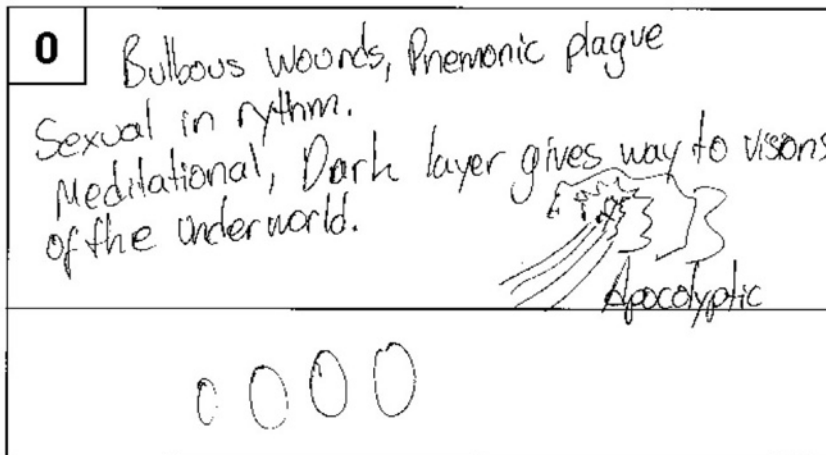 0
Bulbous wounds, Pnemonic plague
Sexual in rythm.
Meditational, Dark layer gives way to visions
of the underworld.
Apocolyptic